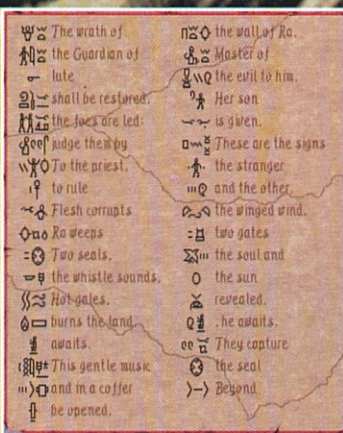 The wrath of
the Guardian of
lute
shall be restored.
the foes are led:
judge them by
To the priest,
to rule
Flesh corrupts
Ra weeps
Two seals,
the whistle sounds,
Hot gales,
burns the land
awaits.
This gentle music
and in a coffer
be opened.
the wall of Ra.
Master of
the evil to him.
Her son
is given.
These are the signs
the stranger
and the other.
the winged wind.
two gates
the soul and
the sun
revealed.
he awaits.
They capture
the seal
Beyond